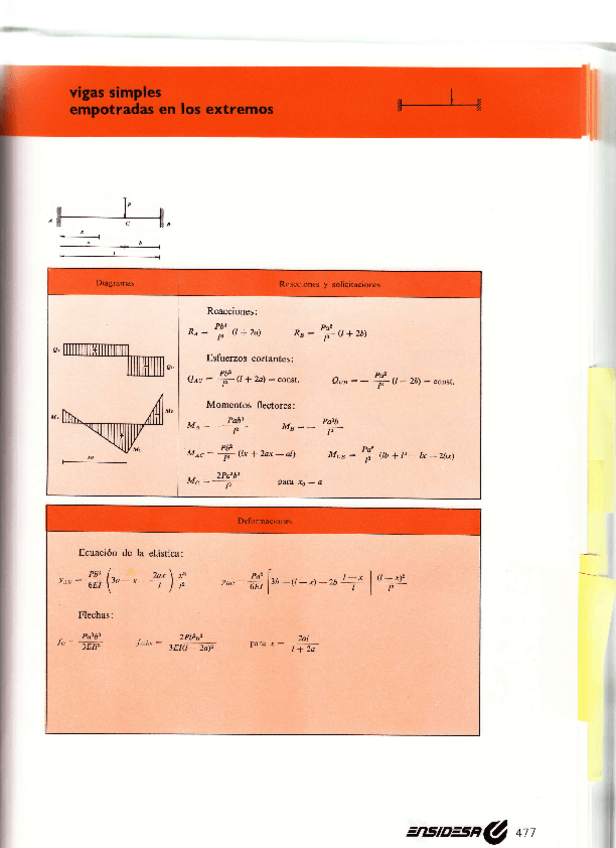 vigas simples
empotradas en los extremos
P
A C B
a b
l
Diagramas Reacciones y solicitaciones
Reacciones:
R_A = Pb²/l³ (l + 2a) R_B = Pa²/l³ (l + 2b)
Esfuerzos cortantes:
Q_AC = Pb²/l³ (l + 2a) = const. Q_CB = — Pa²/l³ (l — 2b) = const.
Momentos flectores:
M_A = — Pab²/l² M_B = — Pa²b/l²
M_AC = Pb²/l³ (lx + 2ax — al) M_CB = Pa²/l³ (lb + l² — lx — 2bx)
M_C = 2Pa²b²/l³ para x₀ = a
Deformaciones
Ecuación de la elástica:
Pb²/6EI (3a — x — 2ax/l) x²/l² Pa²/6EI [3b — (l — x) — 2b l — x/l] (l — x)²/l²
Flechas:
Pa³b³/3EIl³ 2Pb²a³/3EI(l — 2a)² para x = 2al/l + 2a
ENSIDESA 477